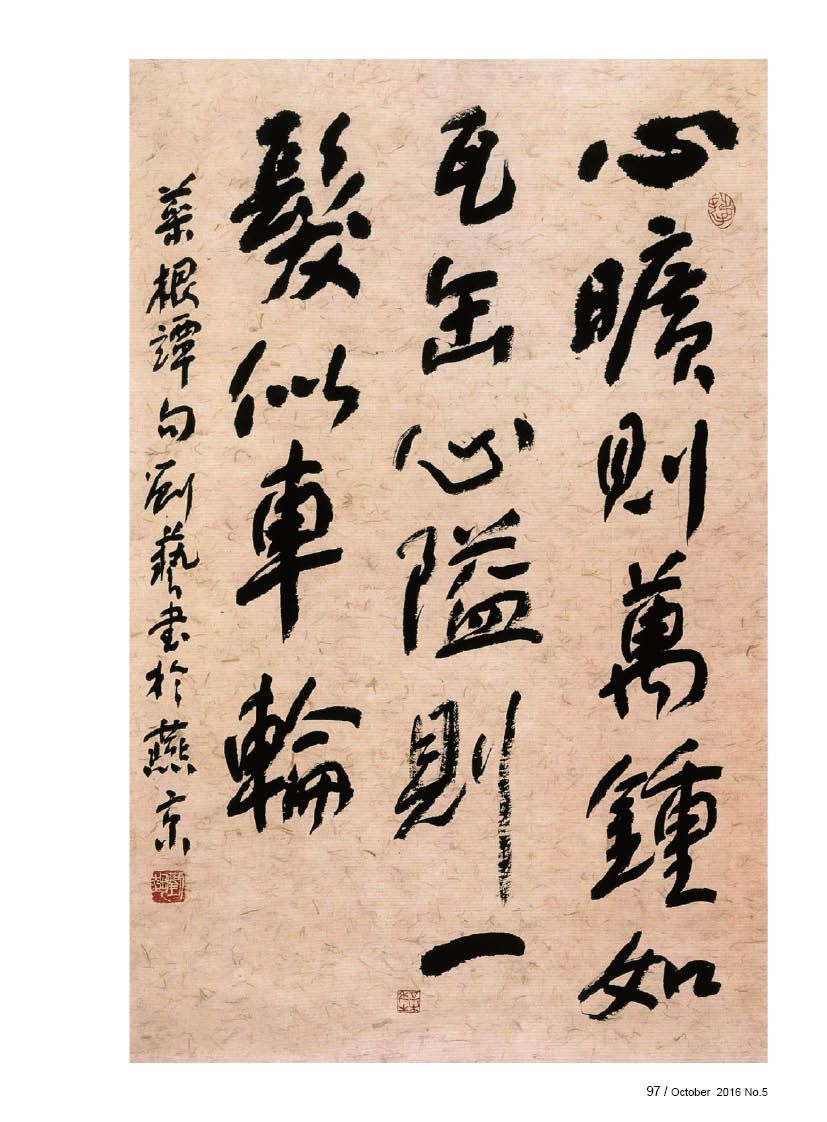 心曠則萬鍾如
瓦缶心隘則一
髮似車輪
菜根譚句劉藝書於燕京
97 / October 2016 No.5